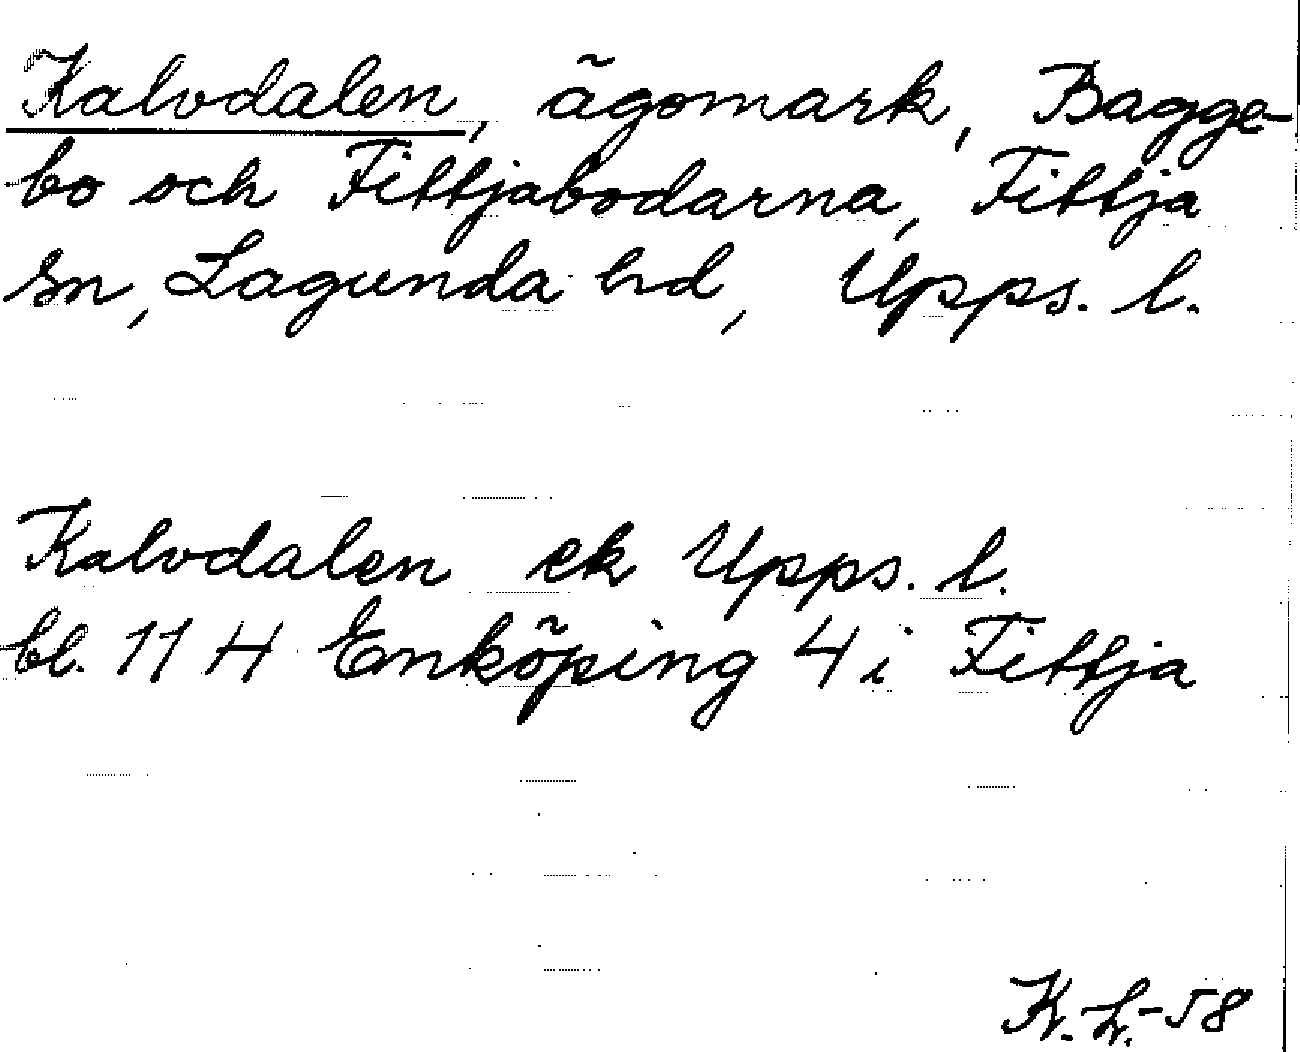 Kalvdalen, ägomark, Bagge-
bo och Fittjabodarna, Fittja
sn, Lagunda hd, Upps. l.
Kalvdalen ek Upps. l.
bl. 11 H Enköping 4 i Fittja
K. L. -58